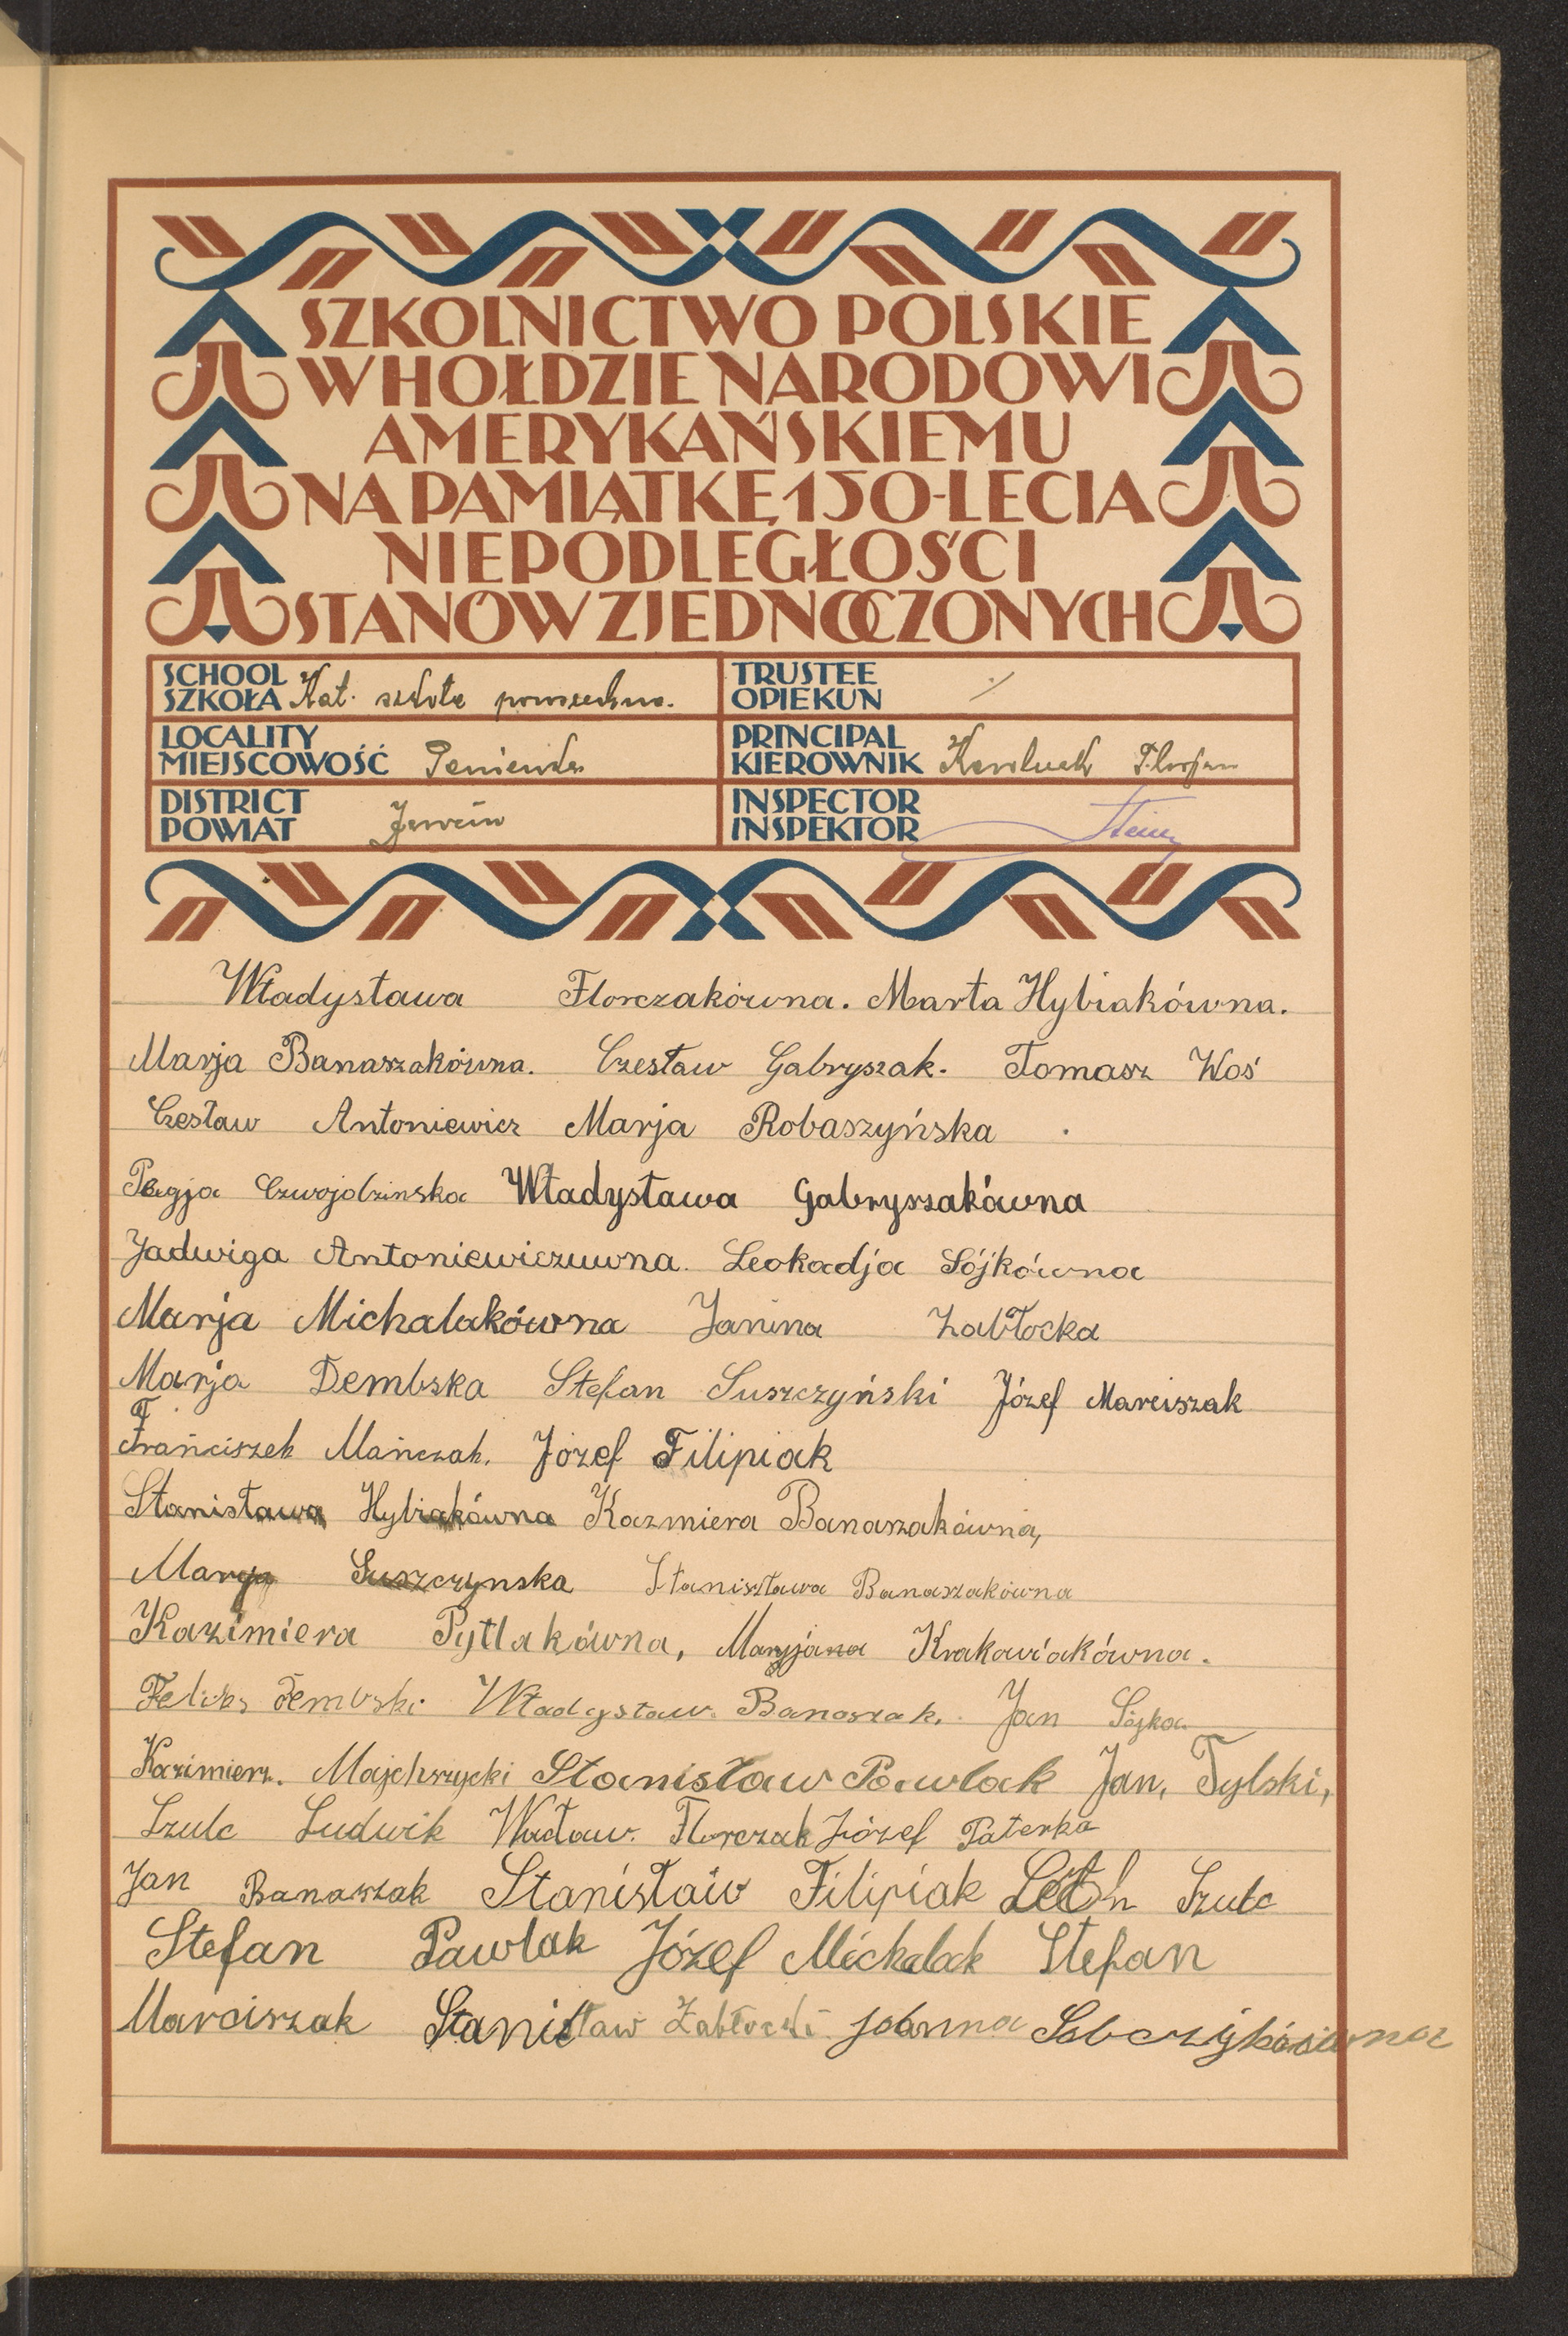 SZKOLNICTWO POLSKIE
W HOŁDZIE NARODOWI
AMERYKAŃSKIEMU
NA PAMIĄTKĘ 150-LECIA
NIEPODLEGŁOŚCI
STANÓW ZJEDNOCZONYCH
SCHOOL
SZKOŁA Kat. szkoła powszechna.
TRUSTEE
OPIEKUN
LOCALITY
MIEJSCOWOŚĆ
PRINCIPAL
KIEROWNIK
DISTRICT
POWIAT
INSPECTOR
INSPEKTOR
Władysława Florczakówna. Marta Hybiakówna.
Marja Banaszakówna. Czesław Gabryszak. Tomasz Woś
Czesław Antoniewicz Marja Robaszyńska
Władysława Gabryszakówna
Jadwiga Antoniewiczuwna. Leokadja Sójkówna
Marja Michalakówna Janina Zabłocka
Marja Dembska Stefan Suszczyński Józef Marciszak
Franciszek Mańczak. Józef Filipiak
Stanisława Hybiakówna Kazmiera Banaszakówna,
Marya Suszczynska Stanisława Banaszakówna
Kazimiera Pytlakówna, Maryjana Krakowiakówna.
Feliks Dembski Władysław. Banaszak. Jan Sójka
Kazimierz. Majchrzycki Stanisław Pawlak Jan, Tylski,
Szulc Ludwik Wacław. Florczak Józef Paterka
Jan Banaszak Stanisław Filipiak Szulc
Stefan Pawlak Józef Michalak Stefan
Marciszak Stanisław Zabłocki Joanna Sobczykówna